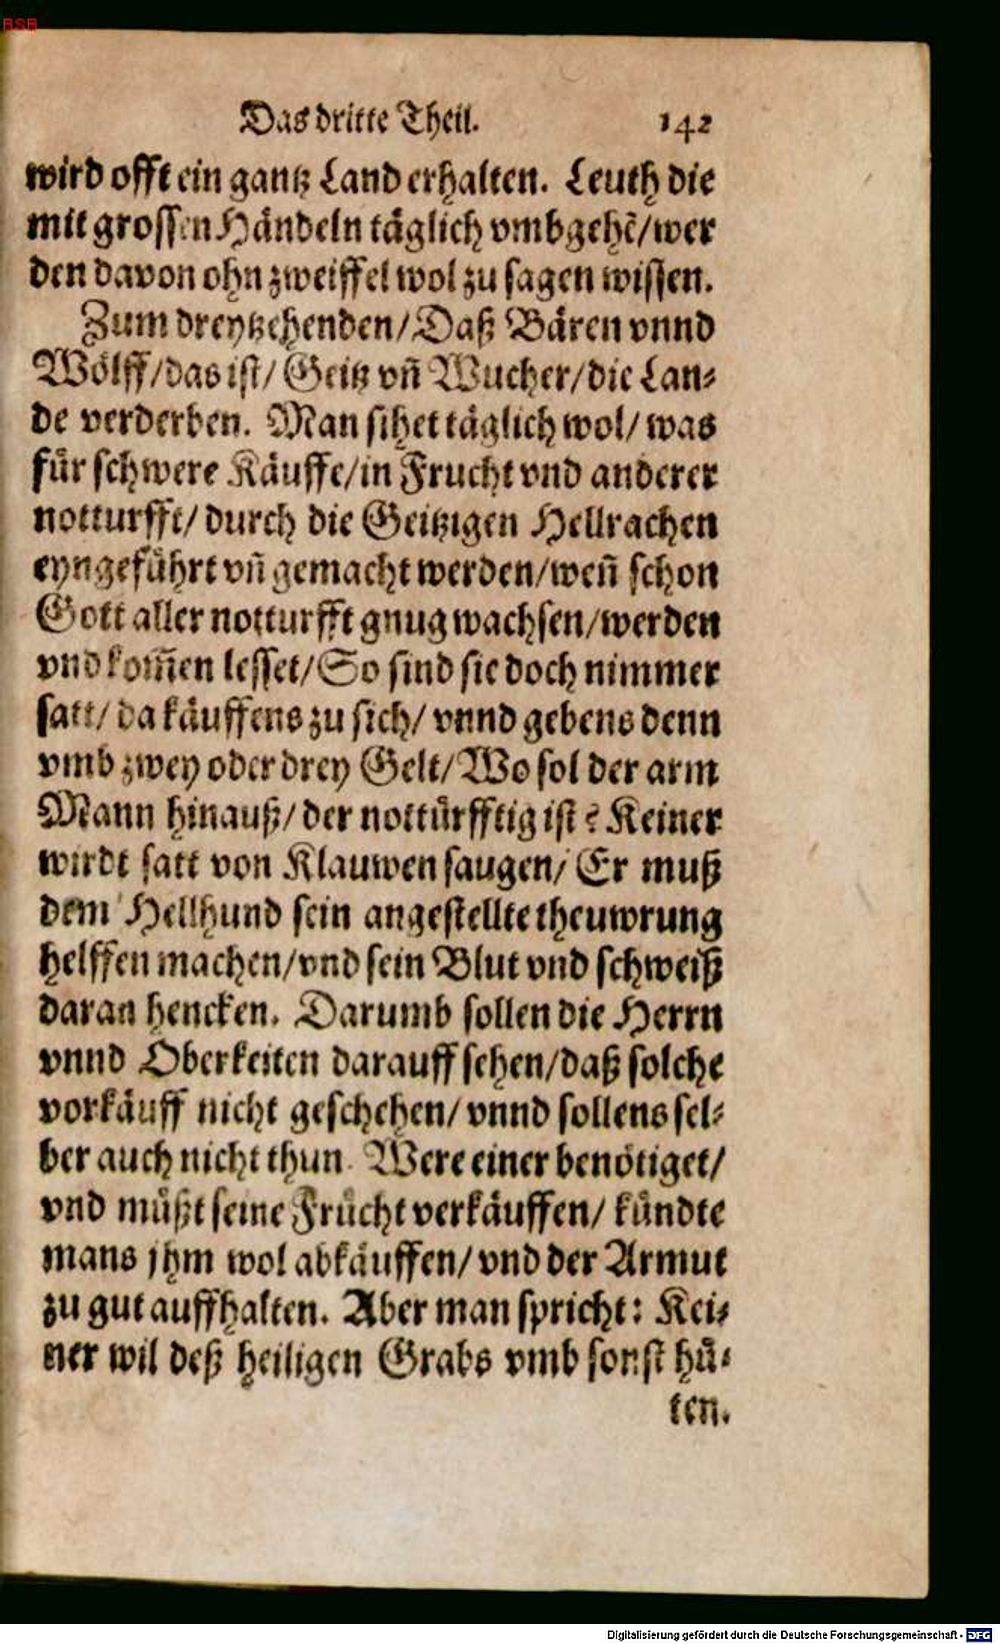 BSB
Das dritte Theil. 142
wird offt ein gantz Land erhalten. Leuth die
mit grossen Händeln täglich vmbgehẽ/wer
den davon ohn zweiffel wol zu sagen wissen.
Zum dreytzehenden/Daß Bären vnnd
Wölff/das ist/ Geitz vñ Wucher/die Lan⸗
de verderben. Man sihet täglich wol/ was
für schwere Käuffe/in Frucht vnd anderer
notturfft/ durch die Geitzigen Hellrachen
eyngeführt vñ gemacht werden/weñ schon
Gott aller notturfft gnug wachsen/werden
vnd kom̃en lesset/So sind sie doch nimmer
satt/ da käuffens zu sich/ vnnd gebens denn
vmb zwey oder drey Gelt/Wo sol der arm
Mann hinauß/ der nottürfftig ist? Keiner
wirdt satt von Klauwen saugen/ Er muß
dem Hellhund sein angestellte theuwrung
helffen machen/vnd sein Blut vnd schweiß
daran hencken. Darumb sollen die Herrn
vnnd Oberkeiten darauff sehen/daß solche
vorkäuff nicht geschehen/ vnnd sollens sel⸗
ber auch nicht thun. Were einer benötiget/
vnd müßt seine Frücht verkäuffen/ kündte
mans jhm wol abkäuffen/ vnd der Armut
zu gut auffhalten. Aber man spricht: Kei⸗
ner wil deß heiligen Grabs vmb sonst hü⸗
ten.
Digitalisierung gefördert durch die Deutsche Forschungsgemeinschaft - DFG